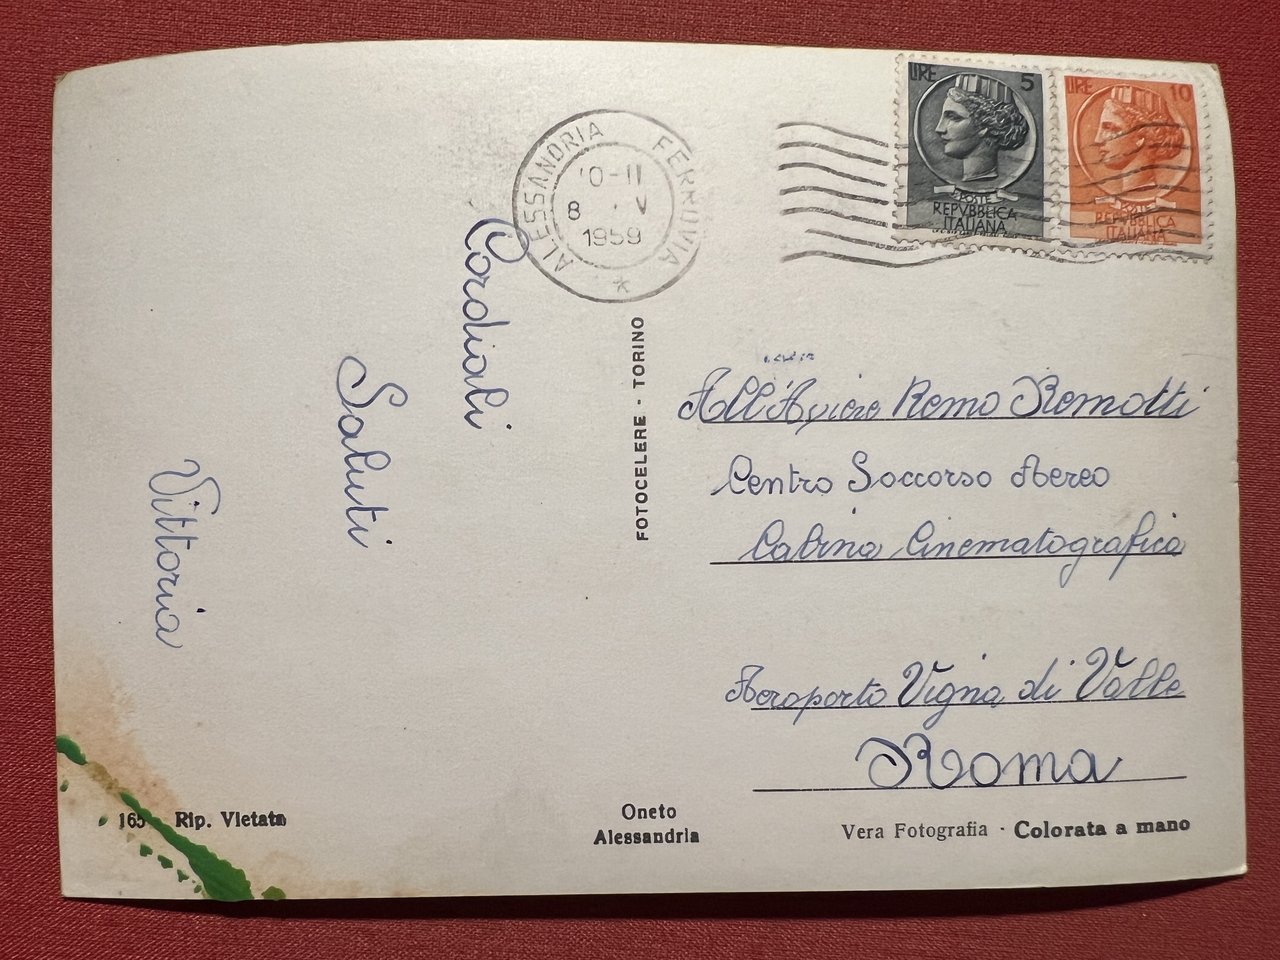 LIRE 5
POSTE
REPVBBLICA
ITALIANA
LIRE 10
POSTE
REPVBBLICA
ITALIANA
ALESSANDRIA FERROVIA
0-11
8 · V
1959
*
Cordiali
Saluti
Vittoria
FOTOCELERE - TORINO
All'Aviere Remo Remotti
Centro Soccorso Aereo
Cabina Cinematografica
Aeroporto Vigna di Valle
Roma
165 Rip. Vietata
Oneto
Alessandria
Vera Fotografia · Colorata a mano